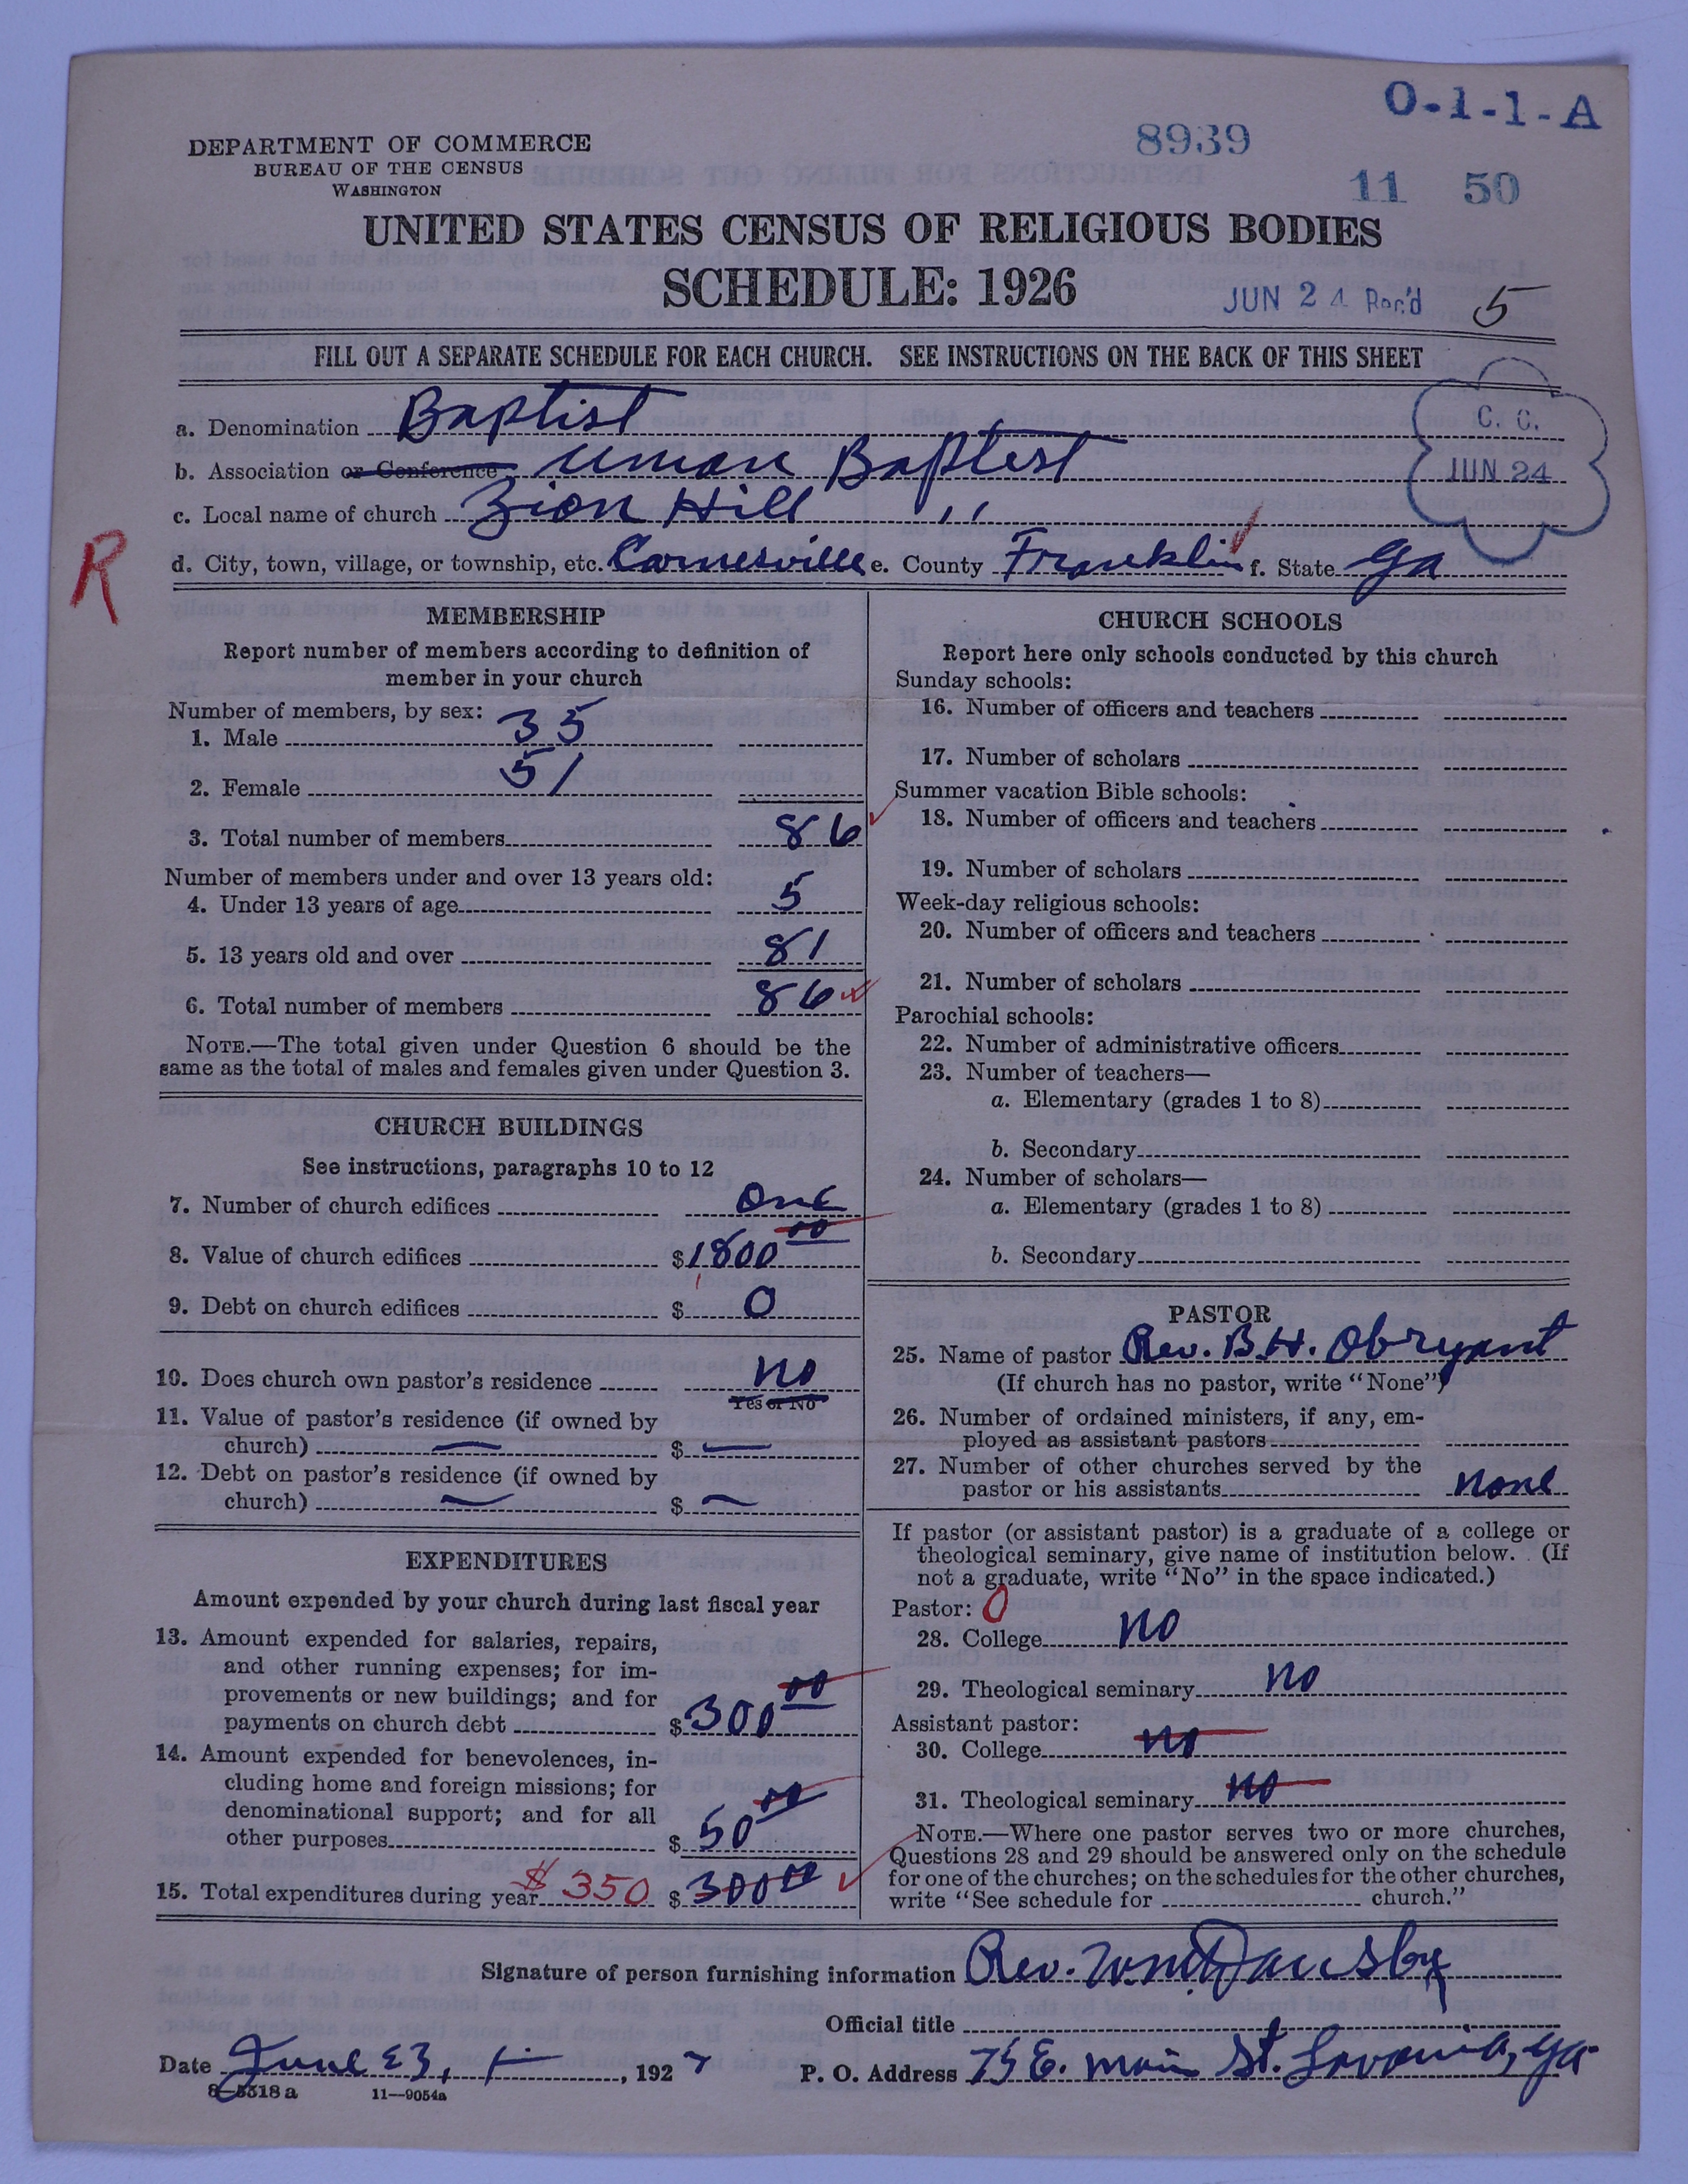 O-1-1-A
DEPARTMENT OF COMMERCE
8939
BUREAU OF THE CENSUS
WASHINGTON
11 50
UNITED STATES CENSUS OF RELIGIOUS BODIES
SCHEDULE: 1926
JUN 24 Rec'd 5
FILL OUT A SEPARATE SCHEDULE FOR EACH CHURCH. SEE INSTRUCTIONS ON THE BACK OF THIS SHEET
C. C.
JUN 24
a. Denomination Baptist
b. Association or Conference Union Baptist
c. Local name of church Zion Hill ,,
R
d. City, town, village, or township, etc. Carnesville e. County Franklin f. State Ga
MEMBERSHIP
Report number of members according to definition of
member in your church
Number of members, by sex:
1. Male 35
2. Female 51
3. Total number of members 86
Number of members under and over 13 years old:
4. Under 13 years of age 5
5. 13 years old and over 81
6. Total number of members 86
NOTE.—The total given under Question 6 should be the
same as the total of males and females given under Question 3.
CHURCH BUILDINGS
See instructions, paragraphs 10 to 12
7. Number of church edifices one
8. Value of church edifices $1800 00
9. Debt on church edifices $ 0
10. Does church own pastor's residence no
Yes or No
11. Value of pastor's residence (if owned by
church) — $ —
12. Debt on pastor's residence (if owned by
church) — $ —
EXPENDITURES
Amount expended by your church during last fiscal year
13. Amount expended for salaries, repairs,
and other running expenses; for im-
provements or new buildings; and for
payments on church debt $300 00
14. Amount expended for benevolences, in-
cluding home and foreign missions; for
denominational support; and for all
other purposes $ 50 00
15. Total expenditures during year $350 $ 300 00
CHURCH SCHOOLS
Report here only schools conducted by this church
Sunday schools:
16. Number of officers and teachers
17. Number of scholars
Summer vacation Bible schools:
18. Number of officers and teachers
19. Number of scholars
Week-day religious schools:
20. Number of officers and teachers
21. Number of scholars
Parochial schools:
22. Number of administrative officers
23. Number of teachers—
a. Elementary (grades 1 to 8)
b. Secondary
24. Number of scholars—
a. Elementary (grades 1 to 8)
b. Secondary
PASTOR
25. Name of pastor Rev. B.H. Obryant
(If church has no pastor, write "None")
26. Number of ordained ministers, if any, em-
ployed as assistant pastors
27. Number of other churches served by the
pastor or his assistants none
If pastor (or assistant pastor) is a graduate of a college or
theological seminary, give name of institution below. (If
not a graduate, write "No" in the space indicated.)
Pastor: 0
28. College no
29. Theological seminary no
Assistant pastor:
30. College no
31. Theological seminary no
NOTE.—Where one pastor serves two or more churches,
Questions 28 and 29 should be answered only on the schedule
for one of the churches; on the schedules for the other churches,
write "See schedule for church."
Signature of person furnishing information Rev. Wm Dansby
Official title
Date June 23, 1927 P. O. Address 75 E. Main St. Lavonia, Ga
8-5318 a 11—9054a